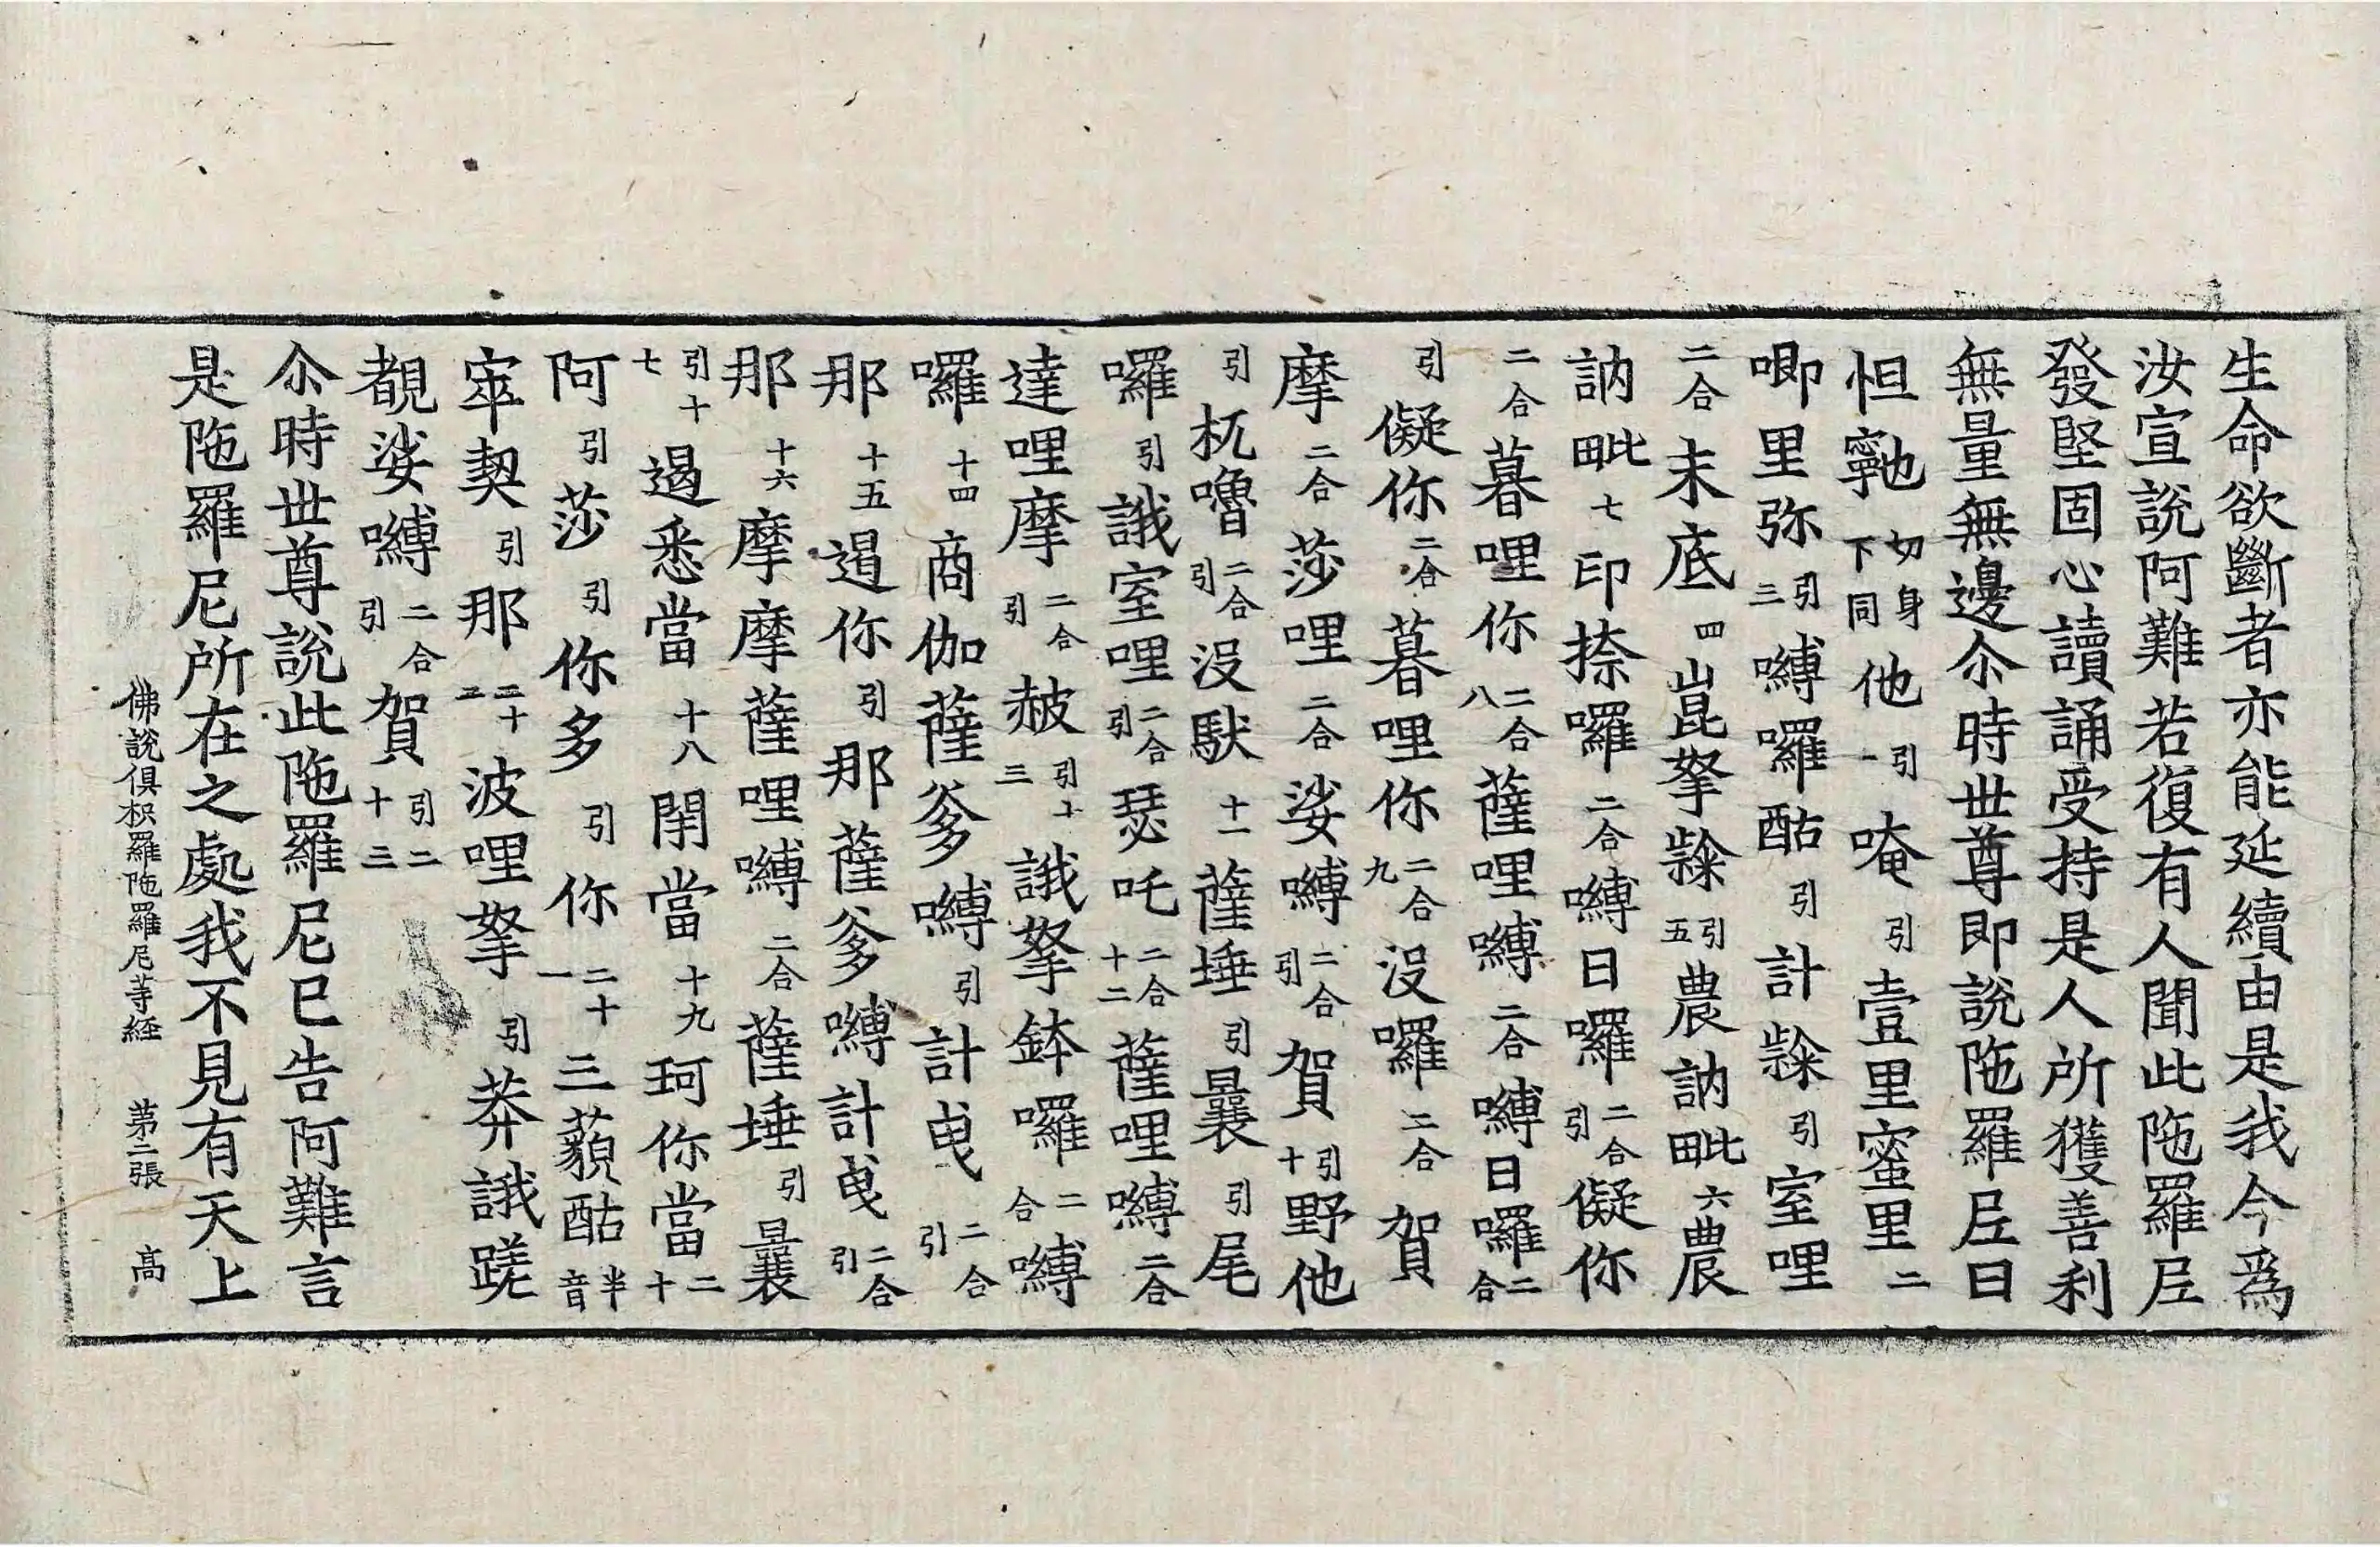 生命欲斷者亦能延續由是我今爲
汝宣說阿難若復有人聞此陁羅𡰱
發堅固心讀誦受持是人所獲善利
無量無邊尒時世尊即說陁羅𡰱曰
怛䩜切身下同他引一唵引壹里蜜里二
唧里弥引三嚩囉酤引計𪘨引室哩
二合末底四崑拏𪘨引五農訥毗六農
訥毗七印捺囉二合嚩日囉二合引儗你
二合暮哩你二合八薩哩嚩二合嚩日囉二合
引儗你二合暮哩你二合九沒囉二合賀
摩二合莎哩二合娑嚩二合引賀引十野他
引杌嚕二合引沒馱十一薩埵引曩引尾
囉引誐室哩二合引瑟吒二合十二薩哩嚩二合
達哩摩二合引赦引十三誐拏鉢囉二合嚩
囉十四商伽薩爹嚩引計曵二合引
那十五遏你引那薩爹嚩計曵二合引
那十六摩摩薩哩嚩二合薩埵引曩
引十七遏悉當十八閉當十九珂你當二十
阿引莎引你多引你二十一三藐酤半音
宰契引那二十二波哩拏引莽誐蹉
覩娑嚩二合引賀引二十三
尒時世尊說此陁羅尼已告阿難言
是陁羅尼所在之處我不見有天上
佛說俱枳羅陁羅尼等経 苐二張 高